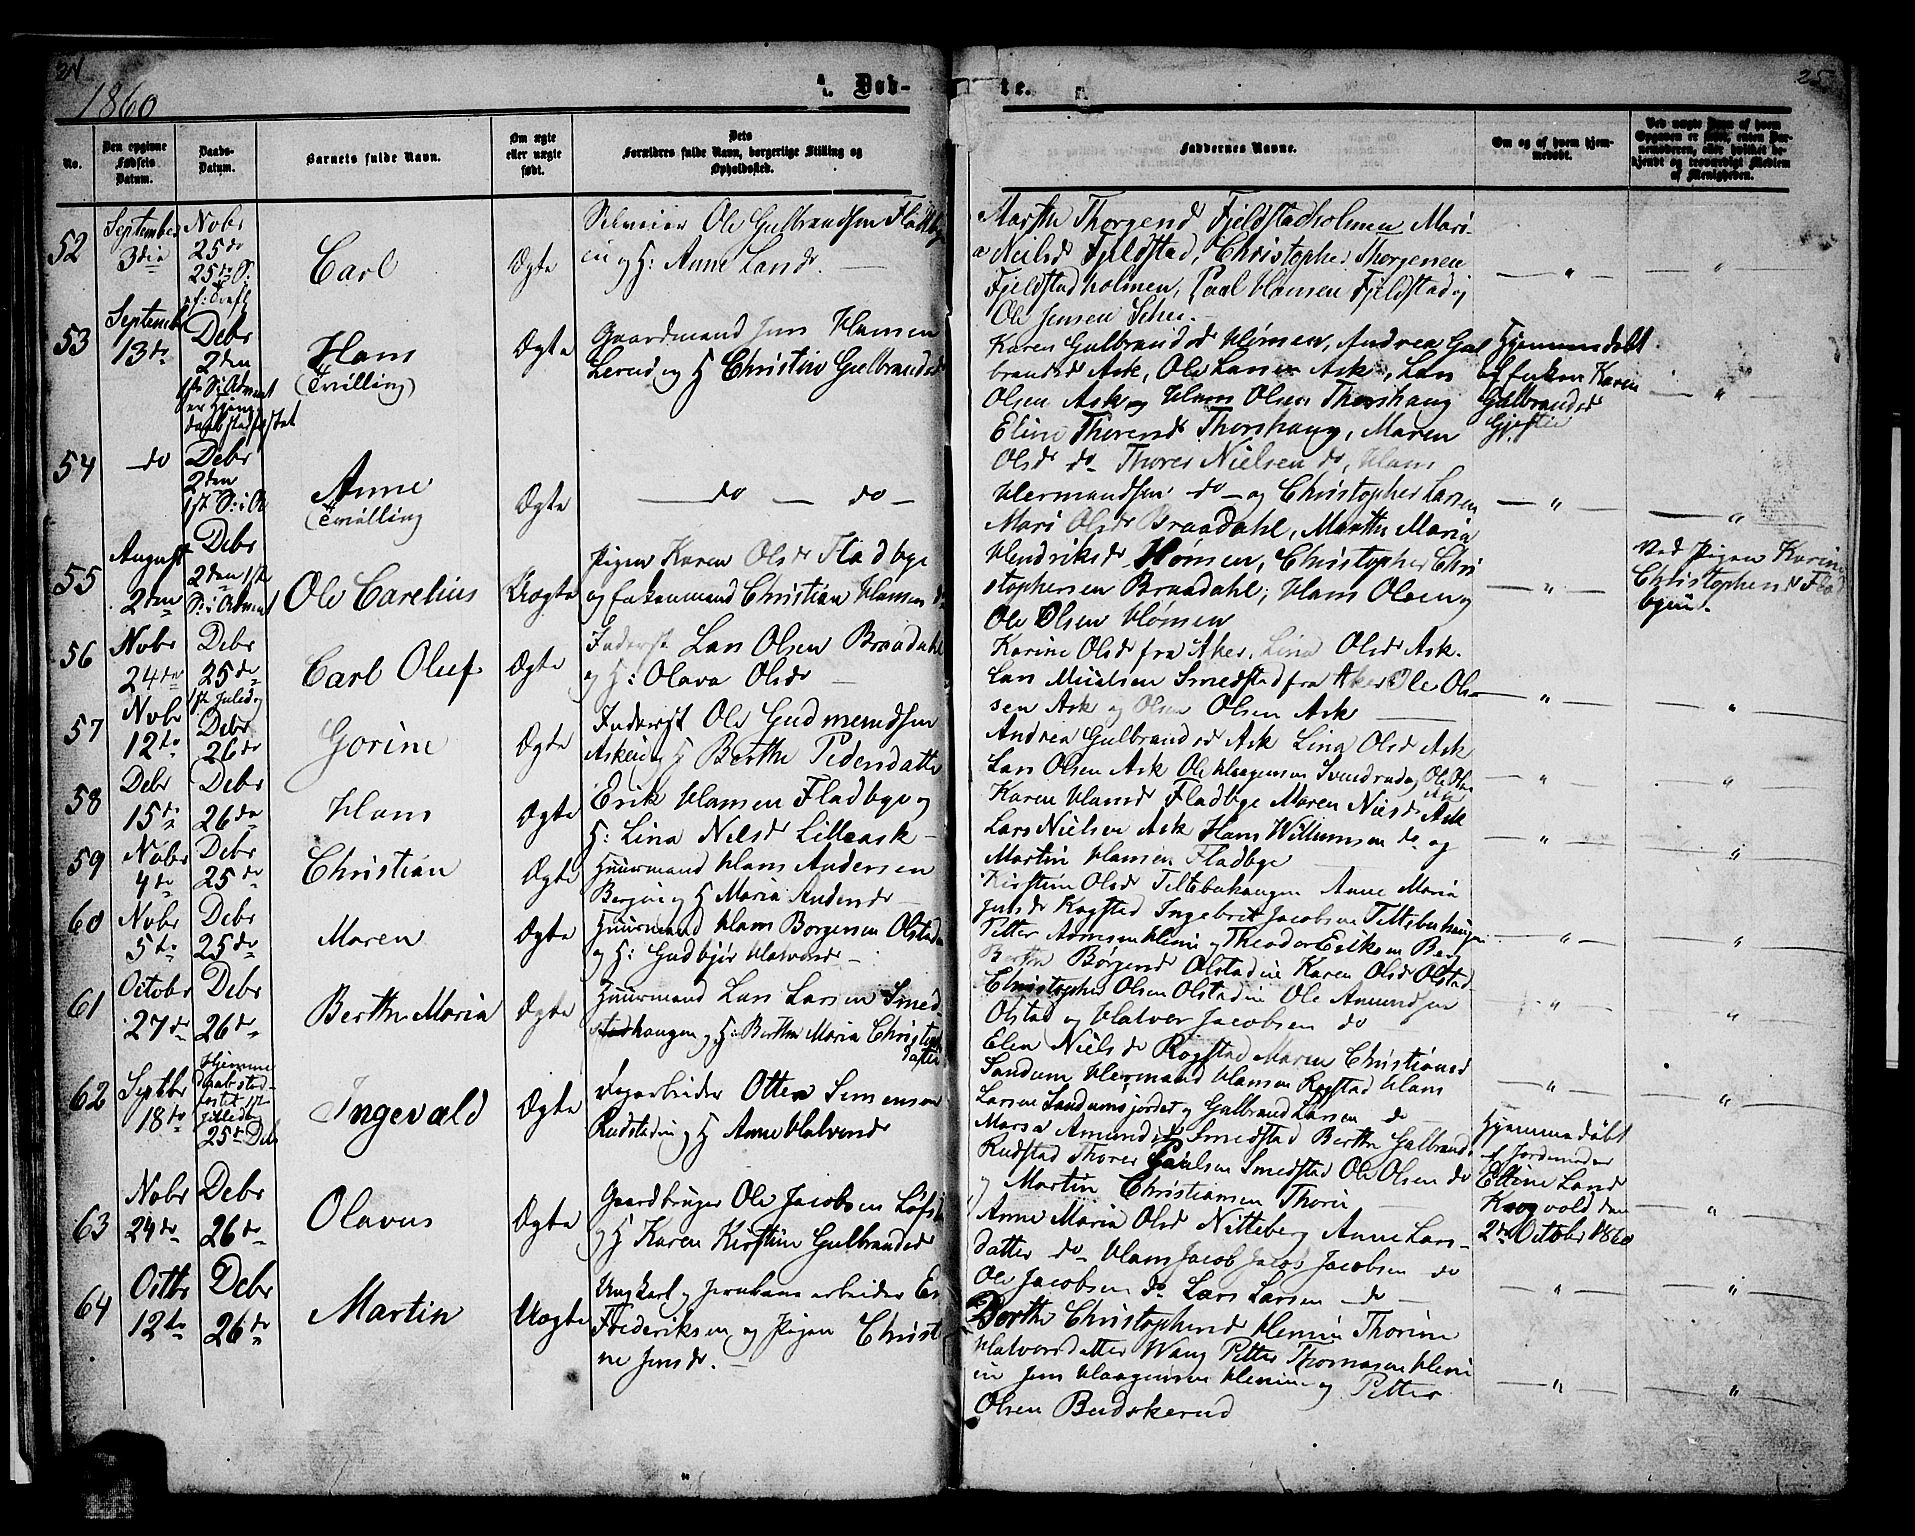 24
1860
A. Døb-
te.
25
No.
Den opgivne Fødsels Datum.
Daabs-Datum.
Barnets fulde Navn.
Om ægte eller uægte født.
Dets Forældres fulde Navn, borgerlige Stilling og Opholdssted.
Faddernes Navne.
Om og af hvem hjemmedøbt.
52
September
3die
Novbr
25de
25de S:
Carl
Ægte
Ole Gulbrandsen Fladbye
in og H: Anne Lands.
Marthe Thorgensd Fjeldstadholmen Mari-
a Neilsd Fjeldstad, Christopher Thorgensen
Fjeldstadholmen, Paal Hansen Fjeldstad og
Ole Jensen Schei.
53
September
13de
Debr
2den
1ste S: i Advent
Hans
(Tvilling)
Ægte
Gaardmand Jens Hansen
Lerud og H Christine Gulbrandsd
Karen Gulbrandsd Hømsen, Andrea Gul
brandsd Ask, Ole Larsen Ask, Lars
Olsen Ask og Hans Olsen Thorshaug
Hjemmedøbt
af Enken Karen
Gulbrandsd
54
do
Debr
2den
1ste S: i A
Anne
(Tvilling)
Ægte
do — do —
Eline Thorensd Thorshaug, Maren
Olsd do Thorer Nielsen do, Hans
Hermandsen do — og Christopher Larsen
55
August
2den
Debr
2den 1ste
S: i Advent
Ole Carelius
Uægte
Pigen Karen Olsd Fladbye
og Enkemand Christian Hansen do
Mari Olsd Braadahl, Marthe Maria
Hendriksd Hømsen, Christopher Chri
stophersen Braadahl, Hans Olsen og
Ole Olsen Hømsen
Ved Pigen Karine
Christophersd Flad
byein.
56
Novbr
24de
Debr
25de
1ste Juledag
Carl Oluf
Ægte
Inderst Lars Olsen Braadahl
og H: Olava Olsdr
Karine Olsd fra Aker, Lina Olsd Ask.
Lars Nielsen Smedstad fra Aker Ole Ol-
sen Ask og Olsen Ask
57
Novbr
12te
Debr
26de
Gorine
Ægte
Inderst Ole Gudmundsen
Askein og H Berthe Pedersdatter
Andrea Gulbrandsd Ask Lina Olsd Ask
Lars Olsen Ask Ole Haagensen Svendrud og Ole Ols
58
Debr
15de
Debr
26de
Hans
Ægte
Erik Hansen Fladbye og
H: Lina Nelsd Lilleask
Karen Hansd Fladbye Maren Nielsd Ask
Lars Nielsen Ask Hans Willumsen do og
Martin Hansen Fladbye
59
Novbr
4de
Debr
25de
Christian
Ægte
Huusmand Hans Andersen
Bergein og H Maria Andersd
Kirstine Olsd Teltebuhaugen Anne Maria
Jensd Kogstad Ingebret Jacobsen Teltebuhaugen
Petter Arnesen Hemin og Theodor Eriksen Berg
60
Novbr
5te
Debr
25de
Maren
Ægte
Huusmand Hans Børgensen Olstad
og H: Gudbjør Halvorsd
Berthe Børgensd Olstadein Karen Olsd Olstad
Christopher Olsen Olstadein Ole Amundsen
Olstad og Halvor Jacobsen do
61
Octobr
27de
Debr
26de
Berthe Maria
Ægte
Huusmand Lars Larsen Smed-
stadhaugen og H: Berthe Maria Christens
datter
Elen Nielsd Rogstad Maren Christiansd
Sandum Hermand Hansen Rogstad Hans
Larsen Sandumsjordet og Gulbrand Larsen do
62
Septbr
18de
Hjemme
daab stad-
fæstet 1ste
Juledag
25de Debr
Ingevald
Ægte
Dagarbeider Otter Simensen
Rudstadein og H Anne Halvorsd
Marta Amundsd Smedstad Berthe Gulbrandsd
Rudstad Thorer Paulsen Smedstad Ole Olsen do
og Martin Christiansen Thorin
Hjemmedøbt
af Jordmoder
Eline Land
Kogvold den
2den Octobr 1860
63
Novbr
24de
Debr
26de
Olavus
Ægte
Gaardbruger Ole Jacobsen Løfst
og H Karen Kirstine Gulbrandsd
Anne Maria Olsd Nitteberg Anne Lars-
datter do Hans Jacob Jacobsen do
Ole Jacobsen do Lars Larsen do
64
Octbr
12te
Debr
26de
Martin
Uægte
Ungkarl og Jernbanearbeider
Frederiksen og Pigen Christi
ne Jensdr.
Berthe Christophersd Hemin Thorine
Halvorsdatter Wang Petter Thomasen Hemi
in Jens Haagensen Hemin og Petter
Olsen Budskerud